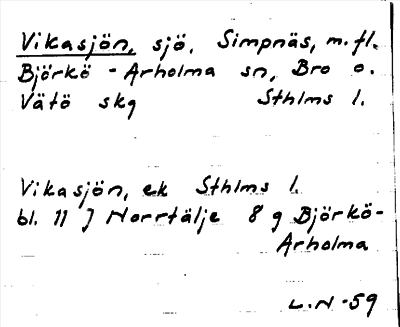 Vikasjön, sjö, Simpnäs, m.fl.
Björkö - Arholma sn, Bro o.
Vätö skg Sthlms l.
Vikasjön, ek Sthlms l.
bl. 11 J Norrtälje 8 g Björkö-
Arholma
L.N -59